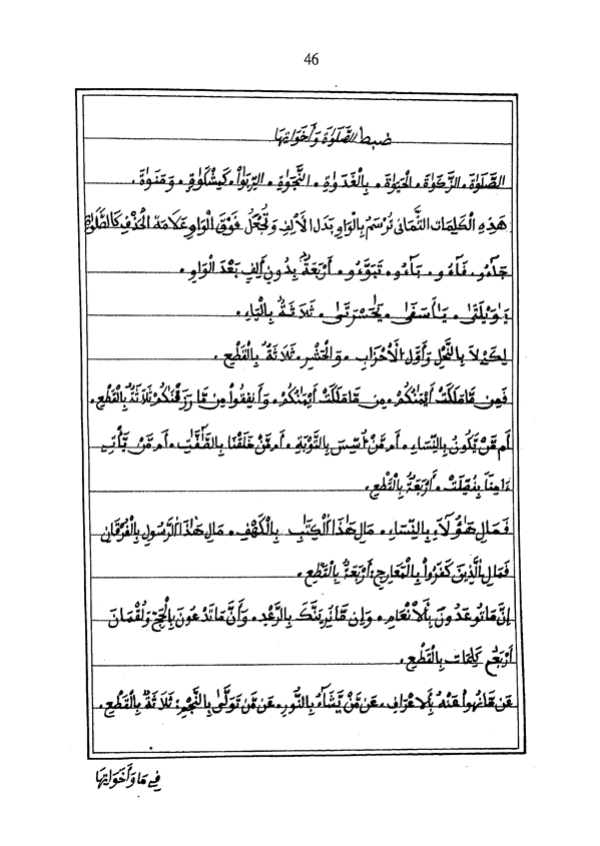 46
ضبط الصَّلَوٰةَ وَأَخَوَاتِهَا
الصَّلَوٰةَ. الزَّكَوٰةَ. الْحَيَوٰةَ. بِالْغَدَوٰةِ. النَّجَوٰةِ. الرِّبَوٰاْ. كَمِشْكَوٰةٍ. وَمَنَوٰةَ.
هَذِهِ الْكَلِمَات الثَّمَانِي تُرْسَمُ بِالْوَاوِ بَدَلَ الأَلِفِ وَتُجْعَلُ فَوْقَ الْوَاوِ عَلاَمَةُ الْحَذْفِ كَالصَّلَوٰة
جَآءُو. فَآءُو. بَآءُو. تَبَوَّءُو. أَرْبَعَةٌ بِدُونِ أَلِفٍ بَعْدَ الْوَاوِ.
يَٰوَيْلَتَىٰ. يَٰأَسَفَىٰ. يَٰحَسْرَتَىٰ. ثَلاَثَةٌ بِالْيَاءِ.
لِكَيْلاَ بِالنَّحْلِ وَأَوَّلِ الْأَحْزَابِ. وَالْحَشْرِ. ثَلاَثَةٌ بِالْقَطْعِ.
فَمِن مَّا مَلَكَتْ أَيْمَٰنُكُمْ. مِن مَّا مَلَكَتْ أَيْمَٰنُكُمْ. وَأَنفِقُواْ مِن مَّا رَزَقْنَٰكُمْ ثَلاَثَةٌ بِالْقَطْعِ.
أَم مَّنْ يَّكُونُ بِالنِّسَاءِ. أَم مَّنْ أُسِّسَ بِالتَّوْبَةِ. أَم مَّنْ خَلَقْنَا بِالصَّٰٓفَّٰتِ. أَم مَّنْ يَّأْتِي
ءَامِناً بِفُصِّلَتْ. أَرْبَعَةٌ بِالْقَطْعِ.
فَمَالِ هَٰٓؤُلَآءِ بِالنِّسَاءِ. مَالِ هَٰذَا الْكِتَٰبِ بِالْكَهْفِ. مَالِ هَٰذَا الرَّسُولِ بِالْفُرْقَانِ
فَمَالِ الَّذِينَ كَفَرُواْ بِالْمَعَارِجِ: أَرْبَعَةٌ بِالْقَطْعِ.
إِنَّ مَا تُوعَدُونَ بِالْأَنْعَامِ. وَإِن مَّا نُرِيَنَّكَ بِالرَّعْدِ. وَأَنَّ مَا تَدْعُونَ بِالْحَجِّ وَلُقْمَانَ
أَرْبَعُ كَلِمَاتٍ بِالْقَطْعِ.
عَن مَّا نُهُواْ عَنْهُ بِالاَعْرَافِ. عَن مَّنْ يَّشَآءُ بِالنُّورِ. عَن مَّن تَوَلَّىٰ بِالنَّجْمِ: ثَلاَثَةٌ بِالْقَطْعِ.
فِي مَا وَأَخَوَاتِهَا